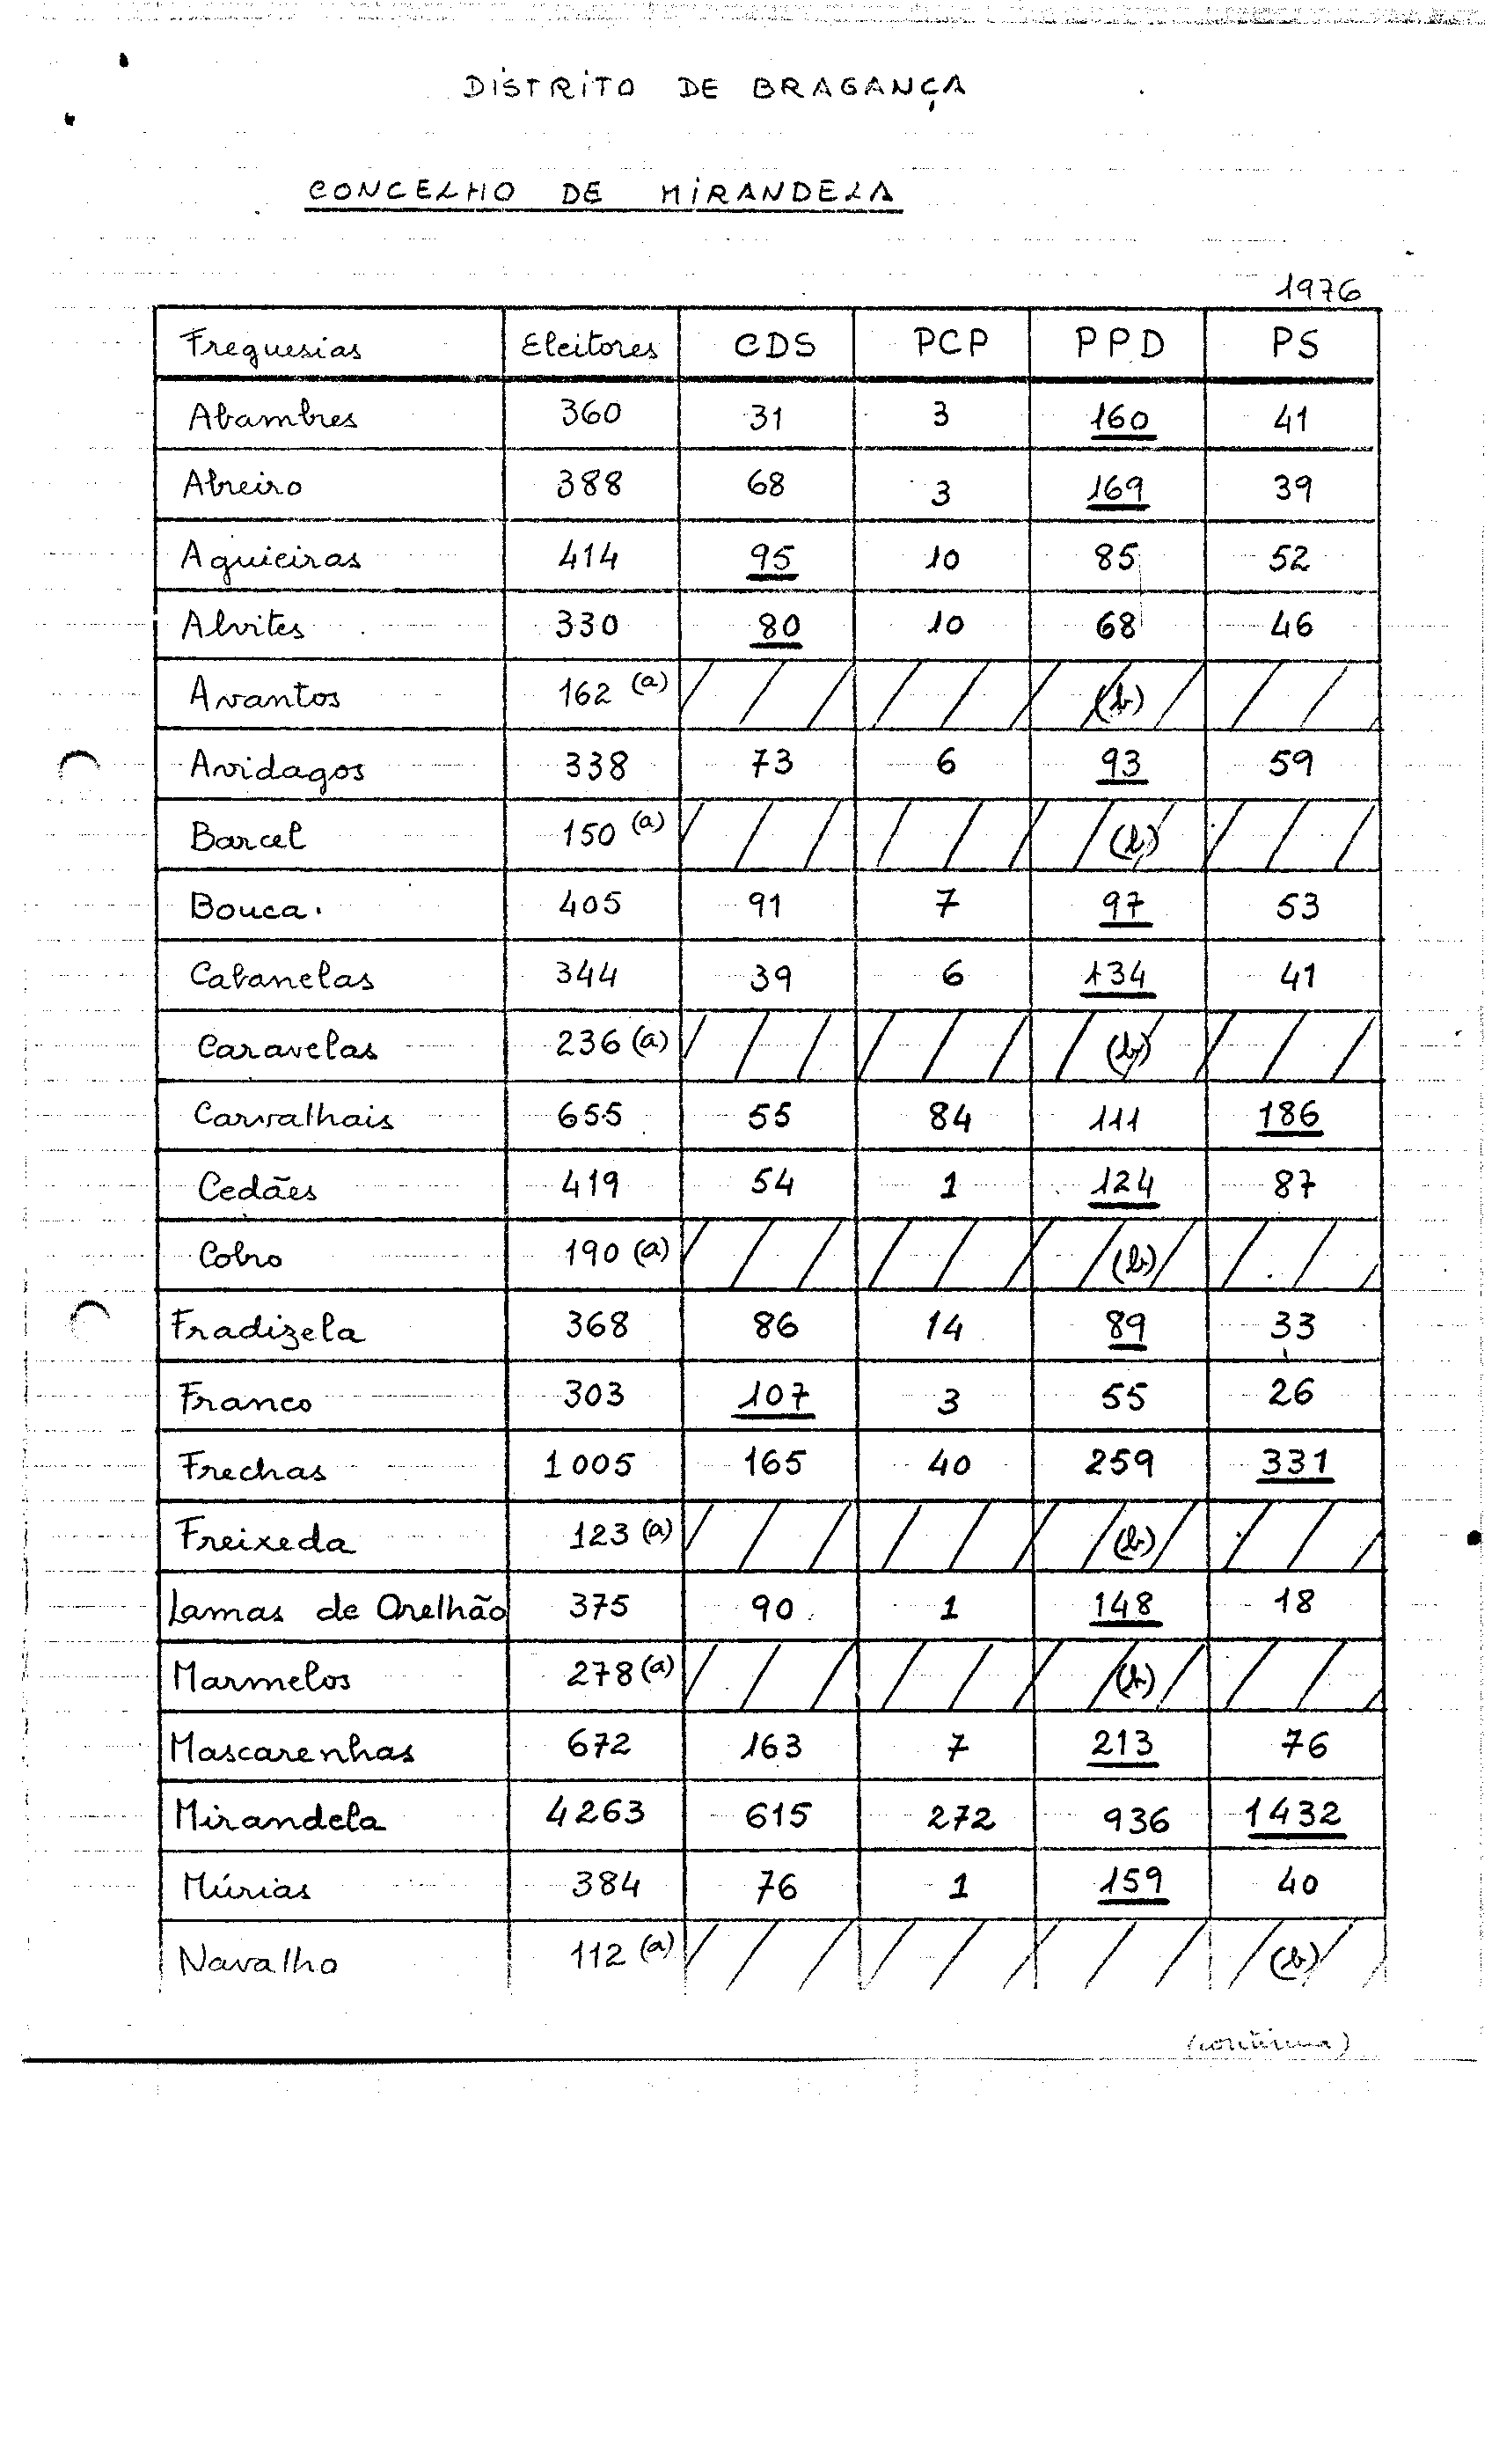 DISTRITO DE BRAGANÇA
CONCELHO DE MIRANDELA
1976
Freguesias Eleitores CDS PCP PPD PS
Abambres 360 31 3 160 41
Abreiro 388 68 3 169 39
Aguieiras 414 95 10 85 52
Alvites 330 80 10 68 46
Avantos 162 (a) (b)
Avidagos 338 73 6 93 59
Barcel 150 (a) (b)
Bouca 405 91 7 97 53
Cabanelas 344 39 6 134 41
Caravelas 236 (a) (b)
Carvalhais 655 55 84 111 186
Cedães 419 54 1 124 87
Cobro 190 (a) (b)
Fradizela 368 86 14 89 33
Franco 303 107 3 55 26
Frechas 1005 165 40 259 331
Freixeda 123 (a) (b)
Lamas de Orelhão 375 90 1 148 18
Marmelos 278 (a) (b)
Mascarenhas 672 163 7 213 76
Mirandela 4263 615 272 936 1432
Múrias 384 76 1 159 40
Navalho 112 (a) (b)
(continua)